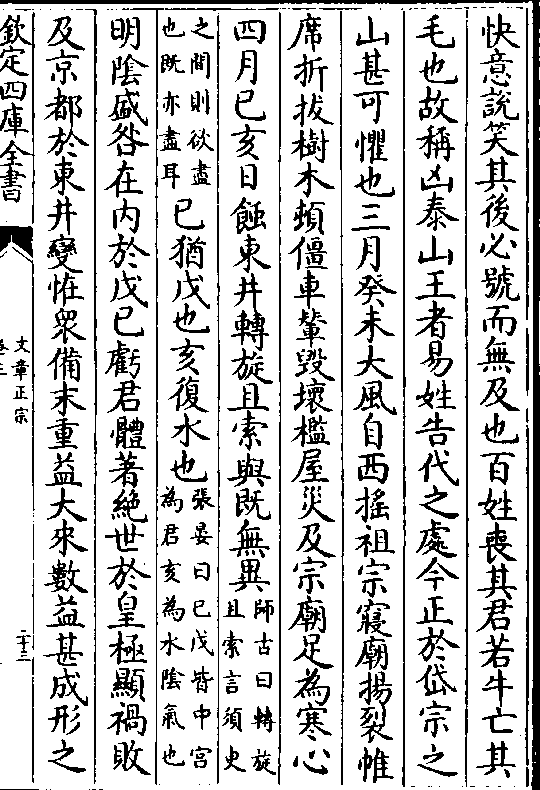 快意說笑其後必號而無及也百姓喪其君若牛亡其
毛也故稱凶泰山王者易姓告代之處今正於岱宗之
山甚可懼也三月癸未大風自西搖祖宗寢廟揚裂帷
席折拔樹木頓僵車輦毀壞檻屋災及宗廟足為寒心
四月己亥日蝕東井轉旋且索與既無異師古曰轉旋且索言須史
之間則欲盡也既亦盡耳己猶戊也亥復水也張晏曰己戊皆中宮為君亥為水陰氣也
明陰盛咎在内於戊己虧君體著絶世於皇極顯禍敗
及京都於東井變怪衆備末重益大來數益甚成形之
欽定四庫全書
文章正宗
卷三
二十三